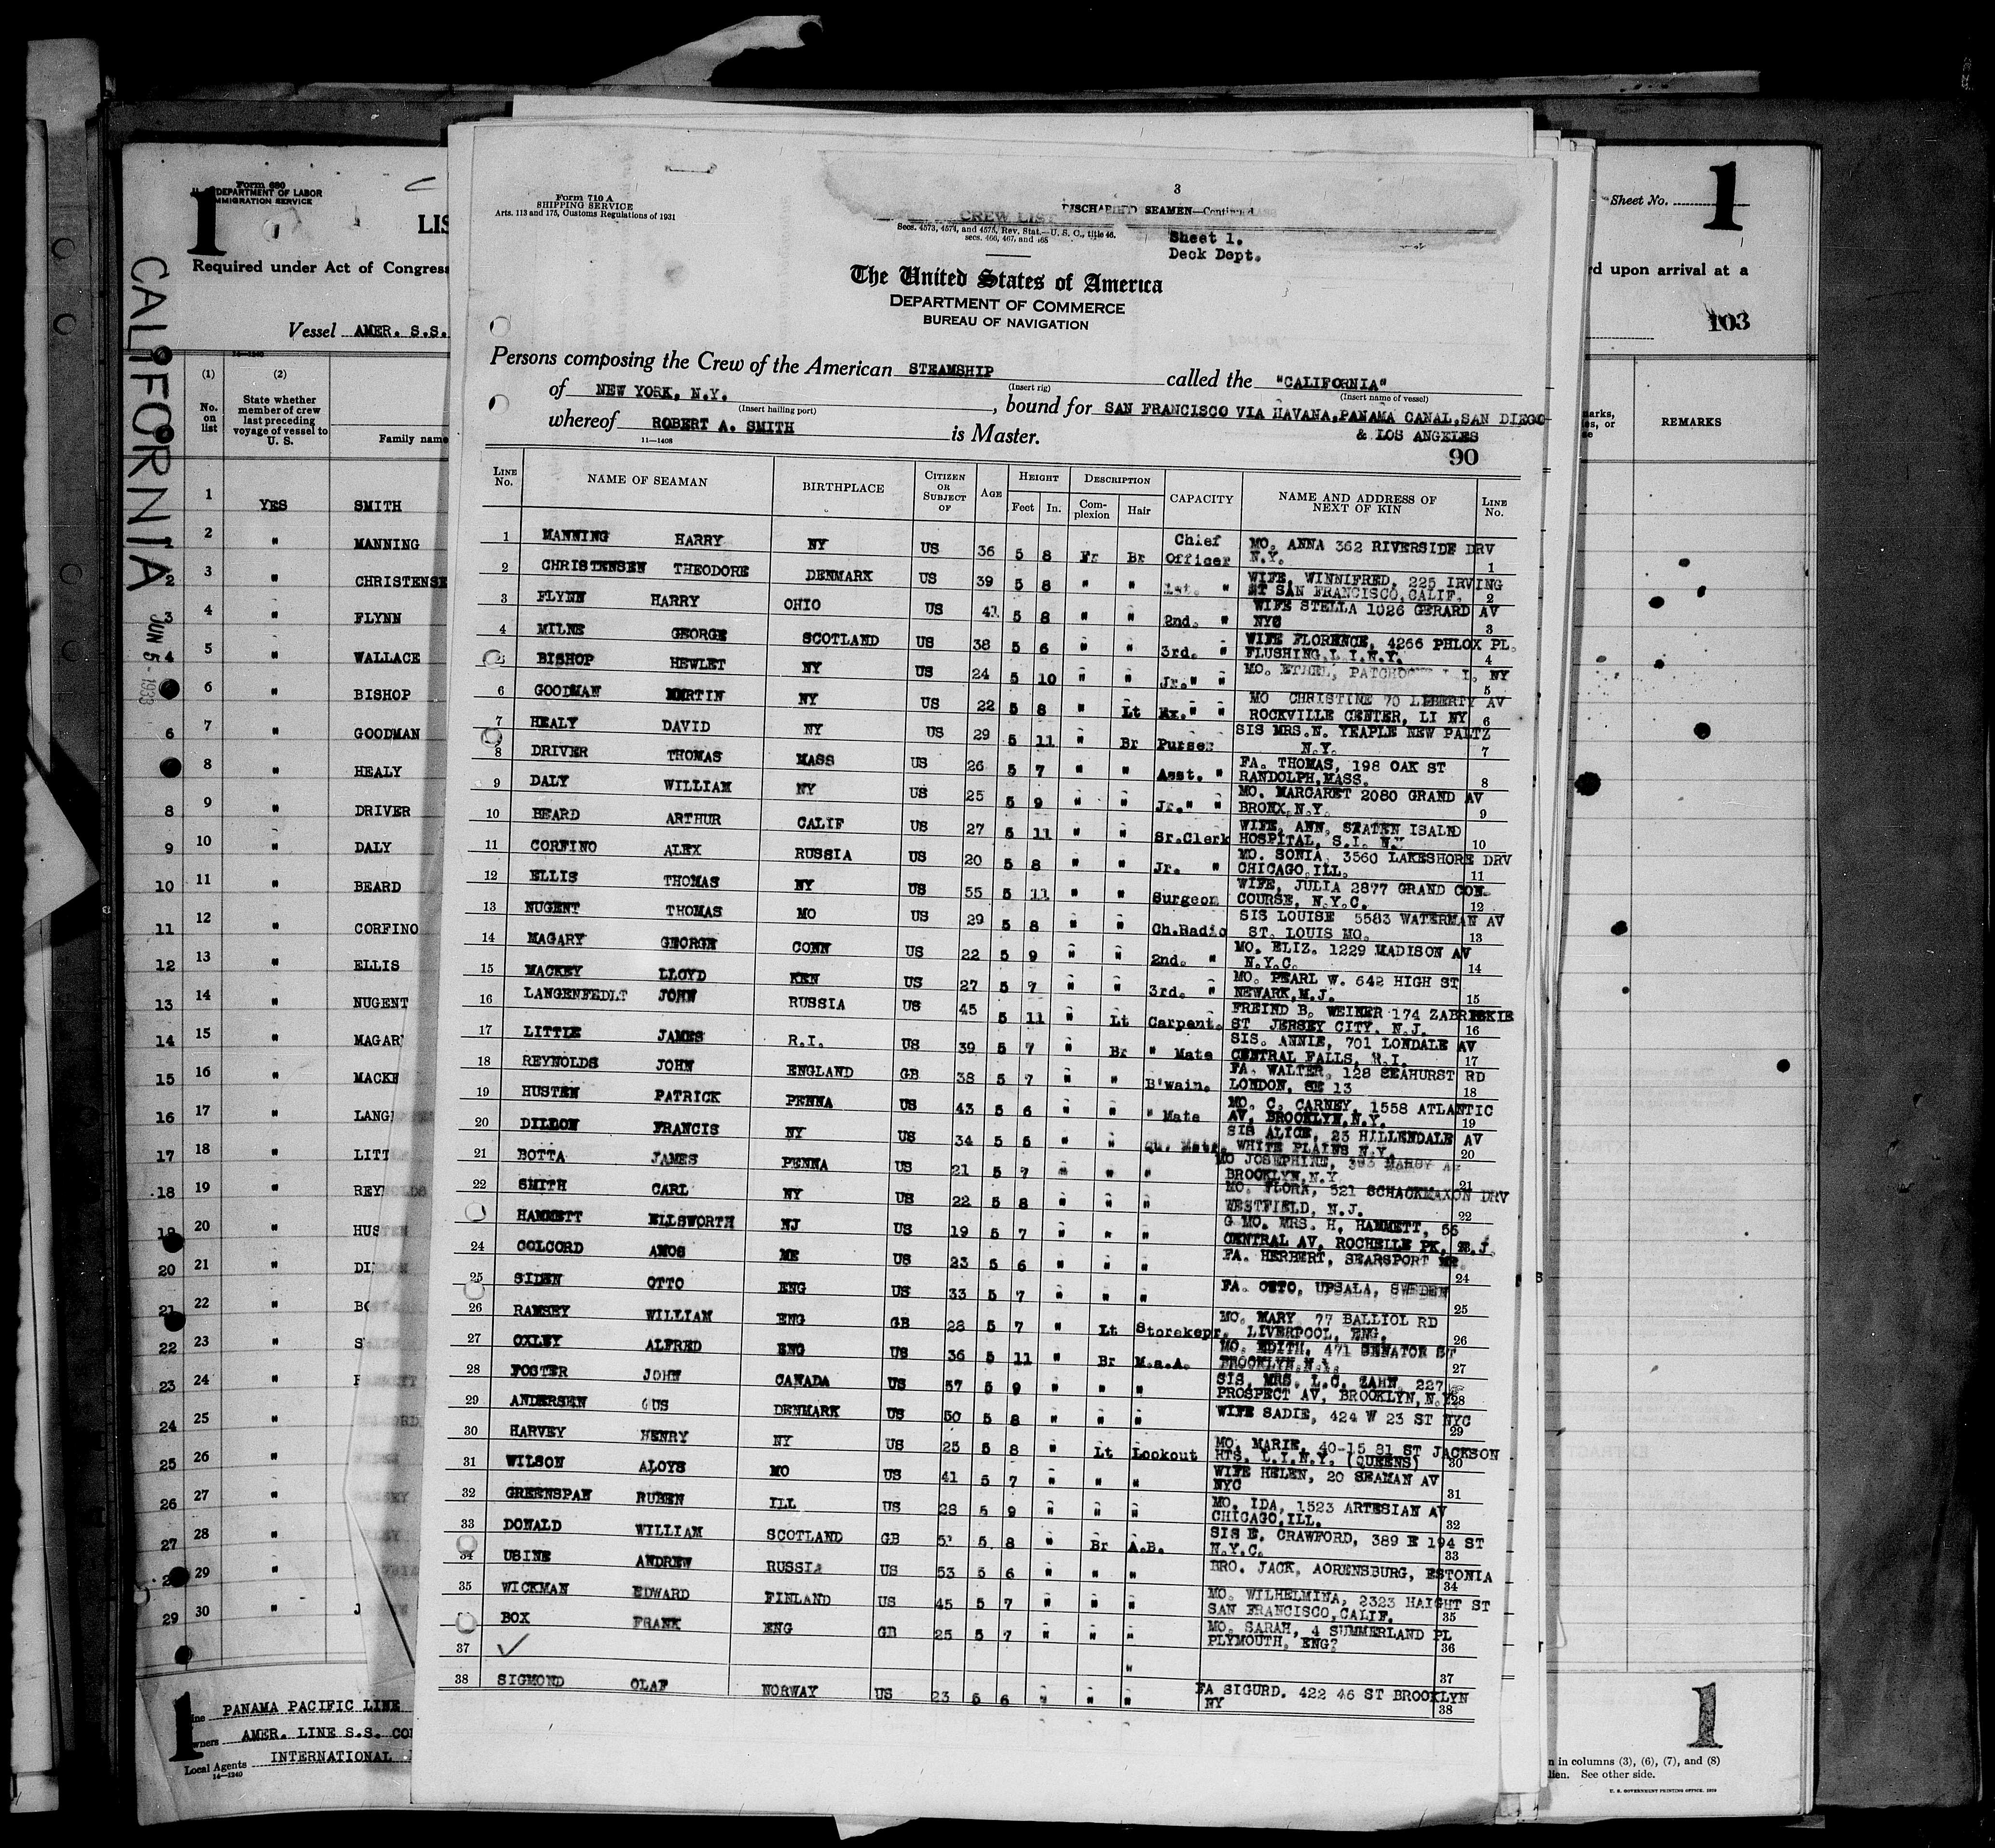 Form 680
U. S. DEPARTMENT OF LABOR
IMMIGRATION SERVICE
1
LIS
Required under Act of Congress
Vessel AMER. S.S.
CALIFORNIA
JUN 5 - 1933
14—1240
(1) (2)
No. on list
State whether member of crew last preceding voyage of vessel to U. S.
Family name
1 YES SMITH
2 " MANNING
3 " CHRISTENSE
4 " FLYNN
5 " WALLACE
6 " BISHOP
7 " GOODMAN
8 " HEALY
9 " DRIVER
10 " DALY
11 " BEARD
12 " CORFINO
13 " ELLIS
14 " NUGENT
15 " MAGAR
16 " MACKE
17 " LANG
18 " LITT
19 " REYNOLDS
20 " HUSTEN
21 " DILLON
22 " BO
23 " S
24 "
25 "
26 "
27 "
28 "
29 "
30 " J
PANAMA PACIFIC LINE
AMER. LINE S.S. CO
Local Agents INTERNATIONAL
14—1240
1
Form 710 A
SHIPPING SERVICE
Arts. 113 and 175, Customs Regulations of 1931
3
DISCHARGED SEAMEN—Continued
CREW LIST
Secs. 4573, 4574, and 4575, Rev. Stat.—U. S. C., title 46,
secs. 466, 467, and 465
Sheet 1.
Deck Dept.
The United States of America
DEPARTMENT OF COMMERCE
BUREAU OF NAVIGATION
Persons composing the Crew of the American STEAMSHIP called the "CALIFORNIA"
(Insert rig) (Insert name of vessel)
of NEW YORK, N.Y. , bound for SAN FRANCISCO VIA HAVANA,PANAMA CANAL,SAN DIEGO
(Insert hailing port)
whereof ROBERT A. SMITH is Master. & LOS ANGELES
11—1408
90
LINE No. NAME OF SEAMAN BIRTHPLACE CITIZEN OR SUBJECT OF AGE HEIGHT DESCRIPTION CAPACITY NAME AND ADDRESS OF NEXT OF KIN LINE No.
Feet In. Complexion Hair
1 MANNING HARRY NY US 36 5 8 Fr Br Chief Officer MO. ANNA 362 RIVERSIDE DRV N.Y. 1
2 CHRISTENSEN THEODORE DENMARK US 39 5 8 " " 1st. " WIFE, WINNIFRED, 225 IRVING ST SAN FRANCISCO,CALIF. 2
3 FLYNN HARRY OHIO US 41 5 8 " " 2nd. " WIFE STELLA 1026 GERARD AV NYC 3
4 MILNE GEORGE SCOTLAND US 38 5 6 " " 3rd. " WIFE FLORENCE, 4266 PHLOX PL. FLUSHING,L.I.N.Y. 4
5 BISHOP HEWLET NY US 24 5 10 " " Jr." " MO. ETHEL, PATCHOGUE L.I. NY 5
6 GOODMAN MARTIN NY US 22 5 8 " Lt Ex." " MO CHRISTINE 70 LIBERTY AV ROCKVILLE CENTER, LI NY 6
7 HEALY DAVID NY US 29 5 11 " Br Purser SIS MRS.N. YEAPLE NEW PALTZ N.Y. 7
8 DRIVER THOMAS MASS US 26 5 7 " " Asst. " FA. THOMAS, 198 OAK ST RANDOLPH,MASS. 8
9 DALY WILLIAM NY US 25 5 9 " " Jr." " MO. MARGARET 2080 GRAND AV BRONX,N.Y. 9
10 BEARD ARTHUR CALIF US 27 5 11 " " Sr.Clerk WIFE, ANN, STATEN ISALND HOSPITAL, S.I. N.Y. 10
11 CORFINO ALEX RUSSIA US 20 5 8 " " Jr. " MO. SONIA, 3560 LAKESHORE DRV CHICAGO,ILL. 11
12 ELLIS THOMAS NY US 55 5 11 " " Surgeon WIFE, JULIA 2877 GRAND CON- COURSE, N.Y.C. 12
13 NUGENT THOMAS MO US 29 5 8 " " Ch.Radio SIS LOUISE 5583 WATERMAN AV ST. LOUIS MO. 13
14 MAGARY GEORGE CONN US 22 5 9 " " 2nd. " MO. ELIZ. 1229 MADISON AV N.Y.C. 14
15 MACKEY LLOYD KEN US 27 5 7 " " 3rd. " MO. PEARL W. 642 HIGH ST NEWARK,M.J. 15
16 LANGENFEDLT JOHN RUSSIA US 45 5 11 " Lt Carpent. FREIND B. WEINER 174 ZABRISKIE ST JERSEY CITY. N.J. 16
17 LITTLE JAMES R.I. US 39 5 7 " Br " Mate SIS. ANNIE, 701 LONDALE AV CENTRAL FALLS, R.I. 17
18 REYNOLDS JOHN ENGLAND GB 38 5 7 " " B'wain. FA. WALTER, 128 SEAHURST RD LONDON, SE 13 18
19 HUSTEN PATRICK PENNA US 43 5 6 " " " Mate MO. C. CARNEY, 1558 ATLANTIC AV, BROOKLYN,N.Y. 19
20 DILLON FRANCIS NY US 34 5 5 " " Qu. Mate. SIS ALICE, 23 HILLENDALE AV WHITE PLAINS N.Y. 20
21 BOTTA JAMES PENNA US 21 5 7 " " " MO JOSEPHINE, AV BROOKLYN,N.Y. 21
22 SMITH CARL NY US 22 5 8 " " " MO. FLORA, 521 SCHACKMAXON DRV WESTFIELD, N.J. 22
HAMMETT ELLSWORTH NJ US 19 5 7 " " " G MO. MRS. H. HAMMETT, 56 CENTRAL AV, ROCHELLE PK, N.J.
24 COLCORD AMOS ME US 23 5 6 " " " FA. HERBERT, SEARSPORT ME. 24
25 SIDEN OTTO ENG US 33 5 7 " " " FA. OTTO, UPSALA, SWEDEN 25
26 RAMSEY WILLIAM ENG GB 28 5 7 " Lt Storekepr. MO. MARY 77 BALLIOL RD LIVERPOOL, ENG. 26
27 OXLEY ALFRED ENG US 36 5 11 " Br M.a.A. MO. EDITH, 471 SENATOR ST BROOKLYN,N.Y. 27
28 FOSTER JOHN CANADA US 57 5 9 " " " SIS, MRS. L.C. ZAHN, 227 PROSPECT AV, BROOKLYN, N.Y. 28
29 ANDERSEN GUS DENMARK US 50 5 8 " " " WIFE SADIE, 424 W 23 ST NYC 29
30 HARVEY HENRY NY US 25 5 8 " Lt Lookout MO. MARIE, 40-15 81 ST JACKSON HTS. L.I.N.Y. (QUEENS) 30
31 WILSON ALOYS MO US 41 5 7 " " " WIFE HELEN, 20 SEAMAN AV NYC 31
32 GREENSPAN RUBEN ILL US 28 5 9 " " " MO. IDA, 1523 ARTESIAN AV CHICAGO,ILL. 32
33 DONALD WILLIAM SCOTLAND GB 5 8 " Br A.B. SIS E. CRAWFORD, 389 E 194 ST N.Y.C. 33
34 USINE ANDREW RUSSIA US 53 5 6 " " " BRO. JACK, AORENSBURG, ESTONIA 34
35 WICKMAN EDWARD FINLAND US 45 5 7 " " " MO. WILHELMINA, 2323 HAIGHT ST SAN FRANCISCO,CALIF. 35
BOX FRANK ENG GB 25 5 7 " " " MO. SARAH, 4 SUMMERLAND PL PLYMOUTH, ENG? 36
37 " 37
38 SIGMOND OLAF NORWAY US 23 5 6 " " " FA SIGURD. 422 46 ST BROOKLYN NY 38
Sheet No. 1
rd upon arrival at a
103
REMARKS
1
n in columns (3), (6), (7), and (8)
lien. See other side.
U. S. GOVERNMENT PRINTING OFFICE